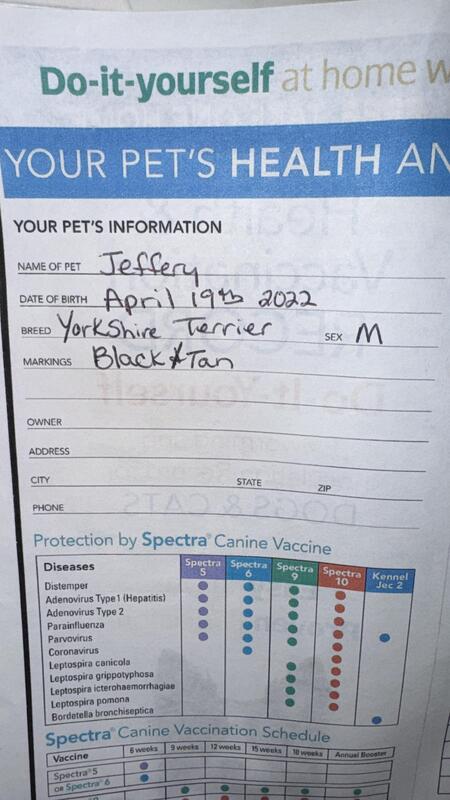 Do-it-yourself at home
YOUR PET'S HEALTH AN
YOUR PET'S INFORMATION
NAME OF PET Jeffery
DATE OF BIRTH April 19th 2022
BREED Yorkshire Terrier SEX M
MARKINGS Black & Tan
OWNER
ADDRESS
CITY STATE ZIP
PHONE
Protection by Spectra® Canine Vaccine
Diseases Spectra 5 Spectra 6 Spectra 9 Spectra 10 Kennel Jec 2
Distemper
Adenovirus Type 1 (Hepatitis)
Adenovirus Type 2
Parainfluenza
Parvovirus
Coronavirus
Leptospira canicola
Leptospira grippotyphosa
Leptospira icterohaemorrhagiae
Leptospira pomona
Bordetella bronchiseptica
Spectra® Canine Vaccination Schedule
Vaccine 6 weeks 9 weeks 12 weeks 15 weeks 18 weeks Annual Booster
Spectra® 5
OR Spectra® 6